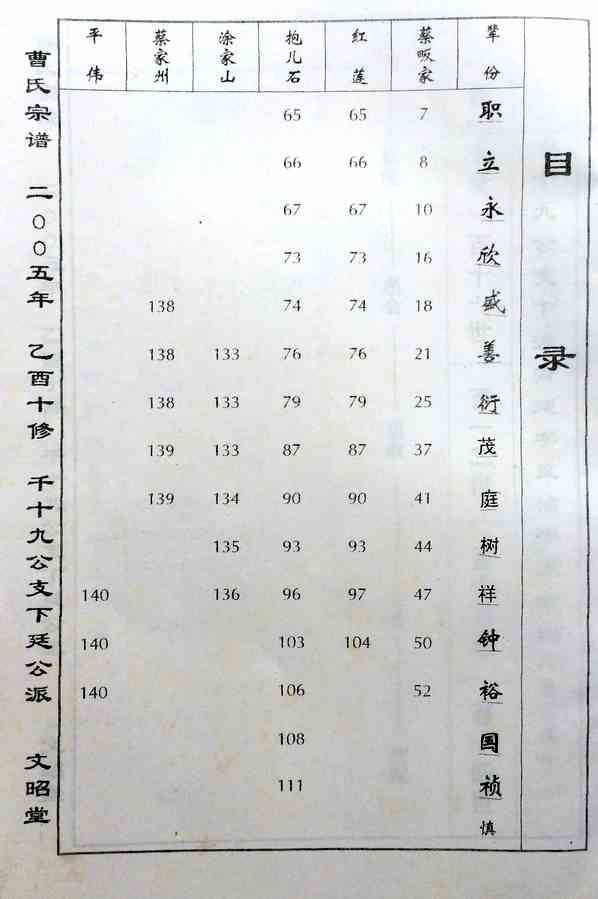 目录
辈份 职 立 永 欣 盛 善 衍 茂 庭 树 祥 钟 裕 国 祯 慎
蔡畈家 7 8 10 16 18 21 25 37 41 44 47 50 52
红莲 65 66 67 73 74 76 79 87 90 93 97 104
抱儿石 65 66 67 73 74 76 79 87 90 93 96 103 106 108 111
涂家山 133 133 133 134 135 136
蔡家州 138 138 138 139 139
平伟 140 140 140
曹氏宗谱 二〇〇五年 乙酉十修 千十九公支下廷公派 文昭堂